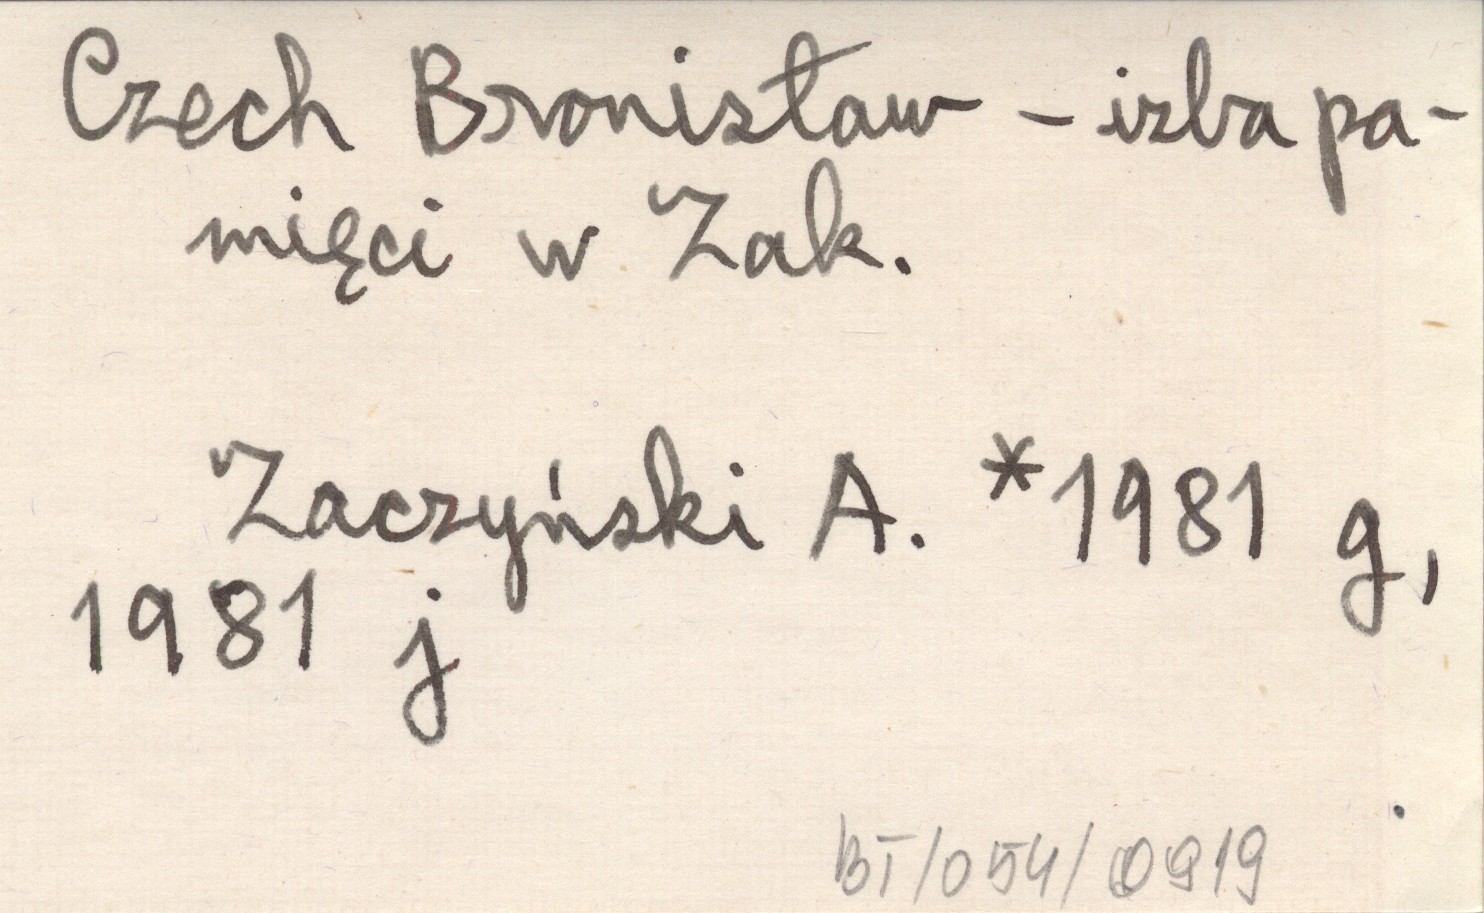 Czech Bronisław - izba pa-
mięci w Zak.
Zaczyński A. *1981 g,
1981 j
BT/054/0919